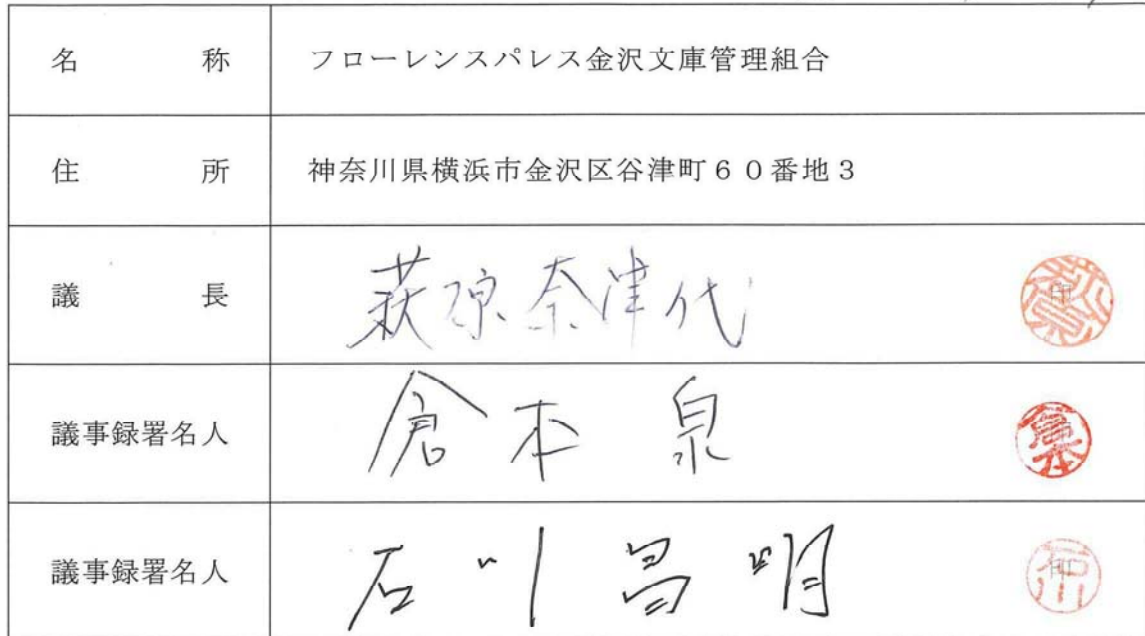 名称 フローレンスパレス金沢文庫管理組合
住所 神奈川県横浜市金沢区谷津町60番地3
議長 萩原奈津代 印
議事録署名人 倉本 泉 倉本
議事録署名人 石川昌明 印 石川